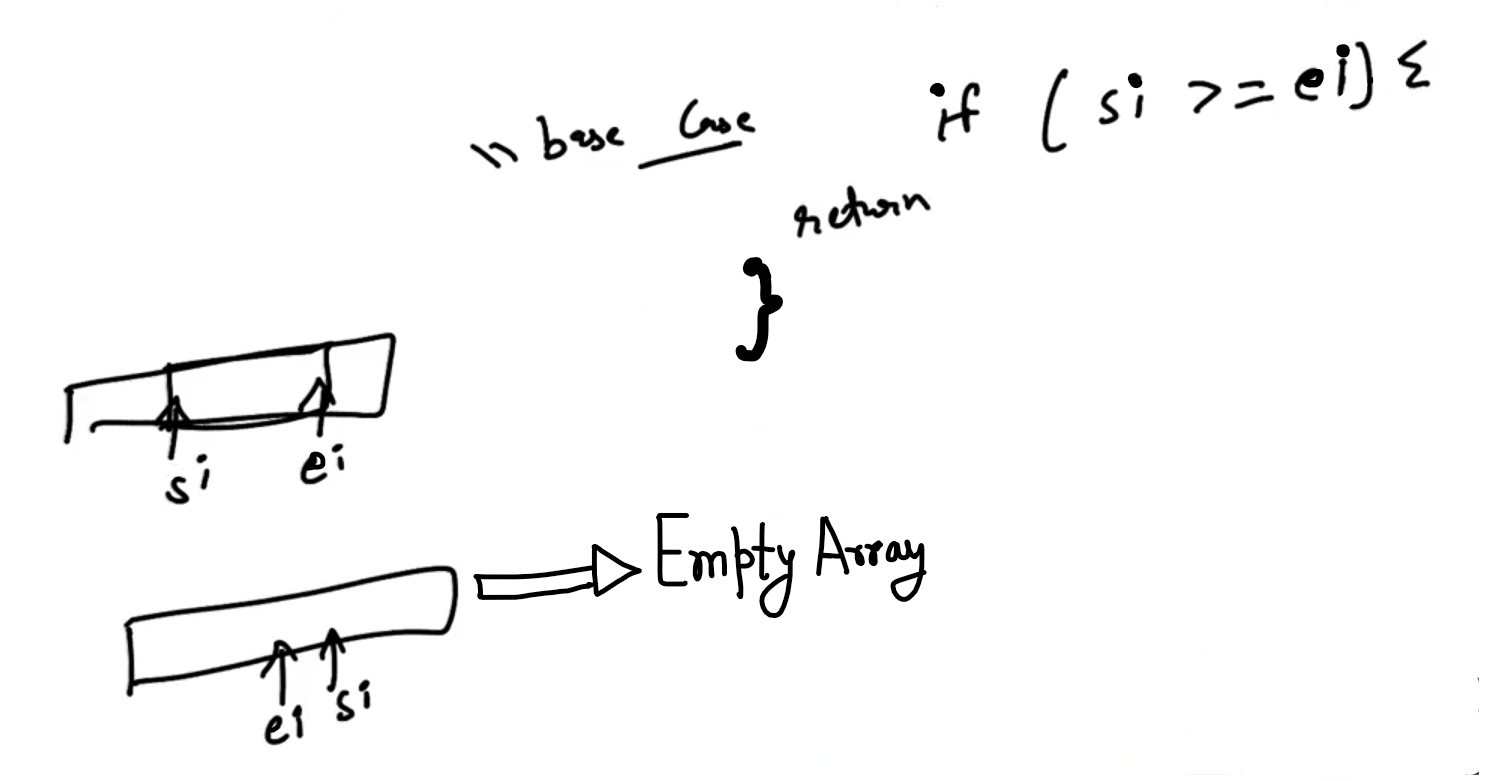 \\ base Case if (si >= ei) {
return
}
si ei
Empty Array
ei si